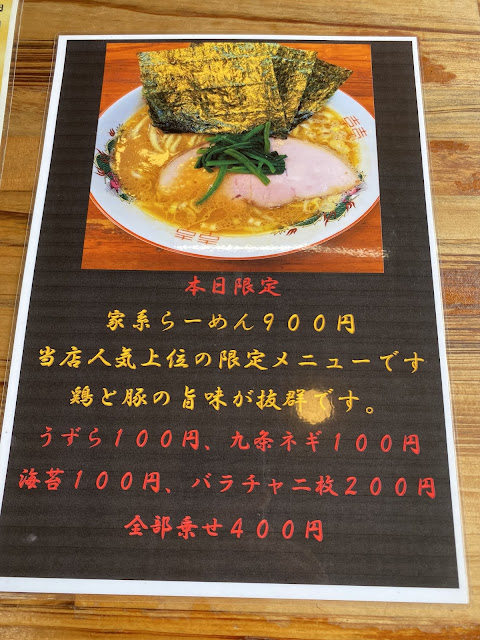 本日限定
家系らーめん９００円
当店人気上位の限定メニューです
鶏と豚の旨味が抜群です。
うずら１００円、九条ネギ１００円
海苔１００円、バラチャ二枚２００円
全部乗せ４００円